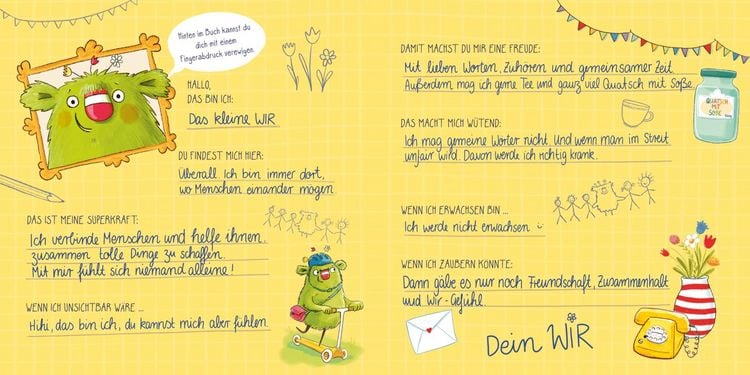 Hinten im Buch kannst du
dich mit einem
Fingerabdruck verewigen.
HALLO,
DAS BIN ICH:
Das kleine WIR
DU FINDEST MICH HIER:
Überall. Ich bin immer dort,
wo Menschen einander mögen
DAS IST MEINE SUPERKRAFT:
Ich verbinde Menschen und helfe ihnen,
zusammen tolle Dinge zu schaffen.
Mit mir fühlt sich niemand alleine!
WENN ICH UNSICHTBAR WÄRE ...
Hihi, das bin ich, du kannst mich aber fühlen
DAMIT MACHST DU MIR EINE FREUDE:
Mit lieben Worten, Zuhören und gemeinsamer Zeit
Außerdem mag ich gerne Tee und ganz viel Quatsch mit Soße
QUATSCH
MIT
SOßE
DAS MACHT MICH WÜTEND:
Ich mag gemeine Wörter nicht. Und wenn man im Streit
unfair wird. Davon werde ich richtig krank.
WENN ICH ERWACHSEN BIN ...
Ich werde nicht erwachsen :-)
WENN ICH ZAUBERN KÖNNTE:
Dann gäbe es nur noch Freundschaft, Zusammenhalt
und Wir-Gefühl.
Dein WIR